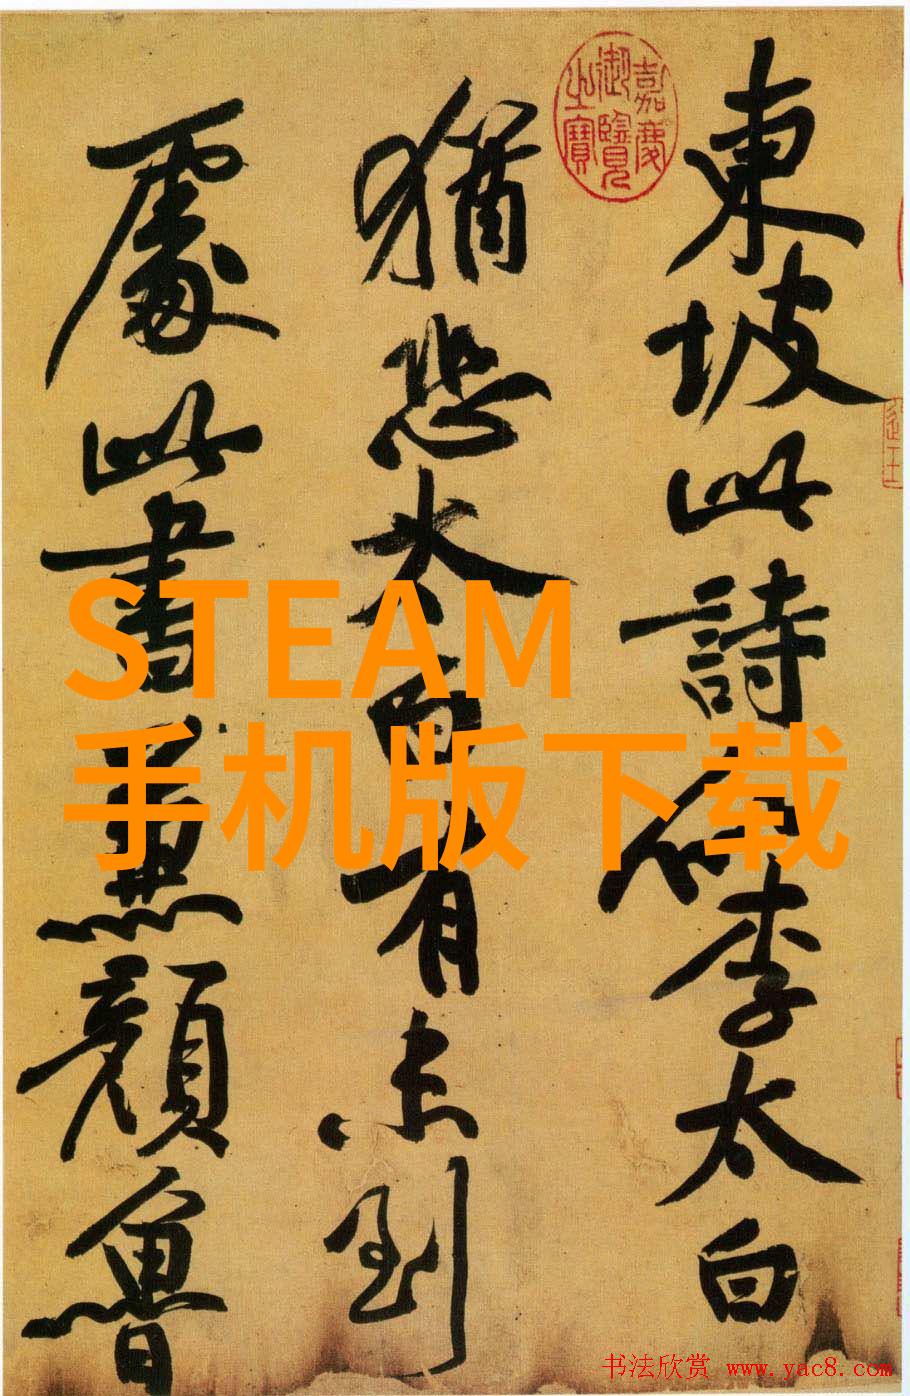 東坡此詩似李太白
猶恐太白有未到
處此書兼顔魯
嘉慶
御覽
之寶
STEAM
手机版下载
书法欣赏 www.yac8.com